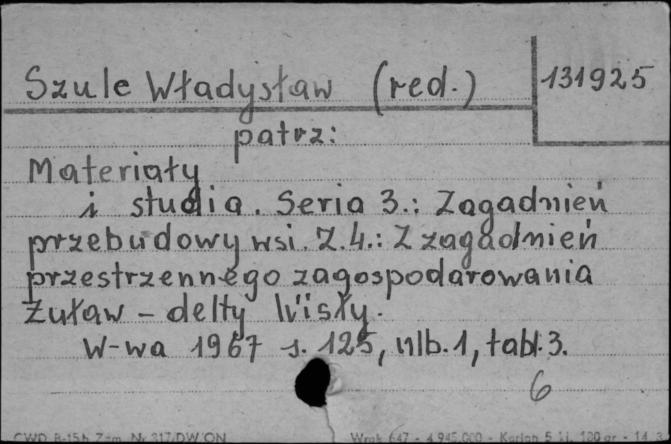 Szule Władysław (red.) 131925
patrz:
Materiały
i studia. Seria 3.: Zagadnień
przebudowy wsi. Z.4.: Z zagadnień
przestrzennego zagospodarowania
Żuław - delty Wisły.
W-wa 1967 s. 125, nlb. 1, tabl. 3.
6
CWD B-15h Zam. Nr 317/DW/ON